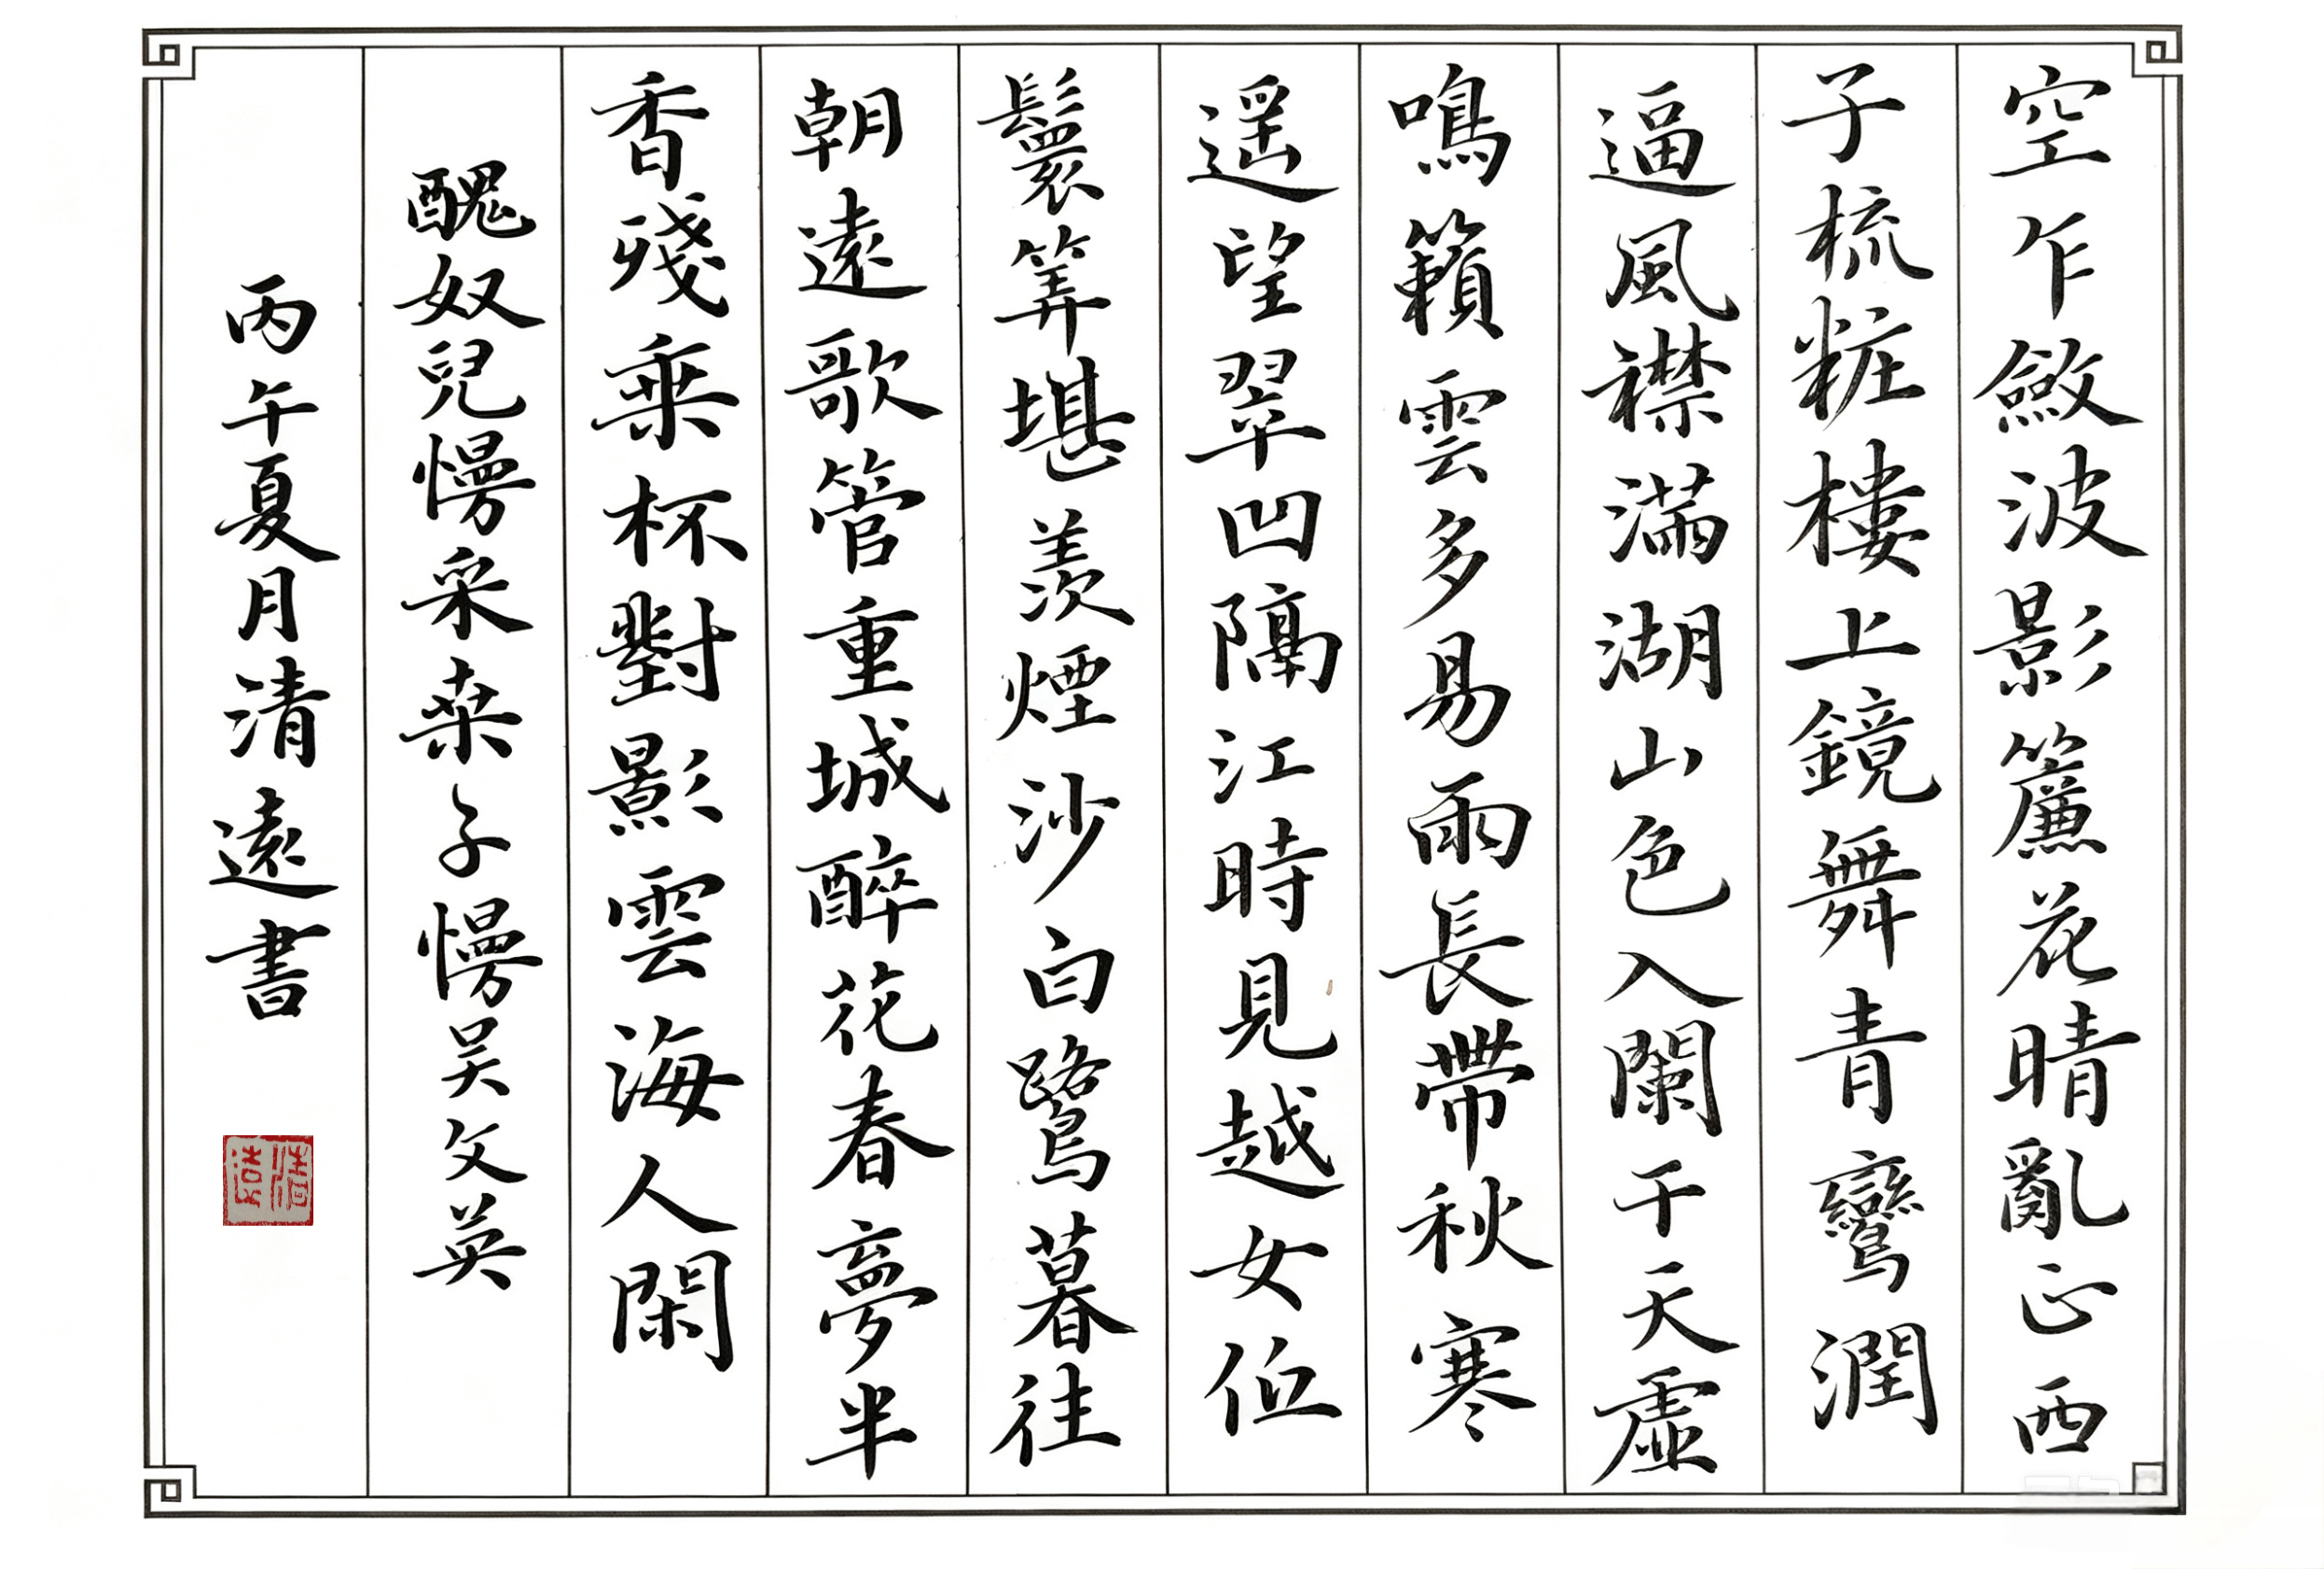 空乍斂波影簾花晴亂正西
子梳粧樓上鏡舞青鸞潤
逼風襟滿湖山色入闌干天虛
鳴籟雲多易雨長帶秋寒
遥望翠凹隔江時見越女低
鬟筭堪羨煙沙白鷺暮往
朝遠歌管重城醉花春夢半
香殘乗杯對影雲海人閑
醜奴兒慢采桒子慢吴文英
丙午夏月清遠書
清遠